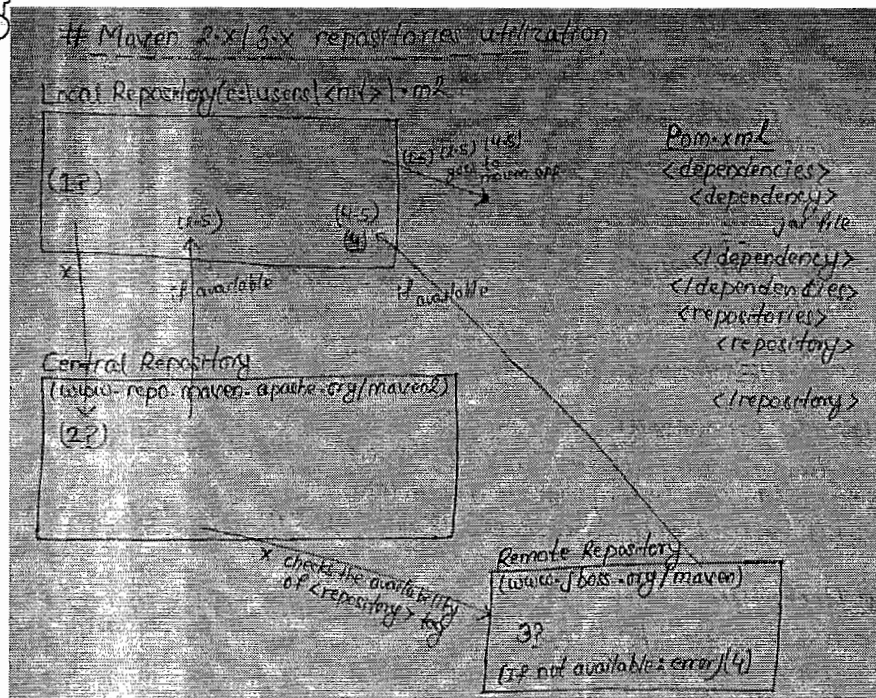 # Maven 2.x/3.x repositories utilization
Local Repository(c:\users\<nit>\.m2
(1?)
(1.5) (2.5) (4.5)
goes to
maven app
(2.5)
(4.5)
(4)
x
if available
if available
Central Repository
(www.repo.maven.apache.org/maven2)
(2?)
x checks the availability
of <repository> tag
Remote Repository
(www.jboss.org/maven)
3?
(If not available: error)(4)
Pom.xml
<dependencies>
<dependency>
jar file
</dependency>
</dependencies>
<repositories>
<repository>
</repository>